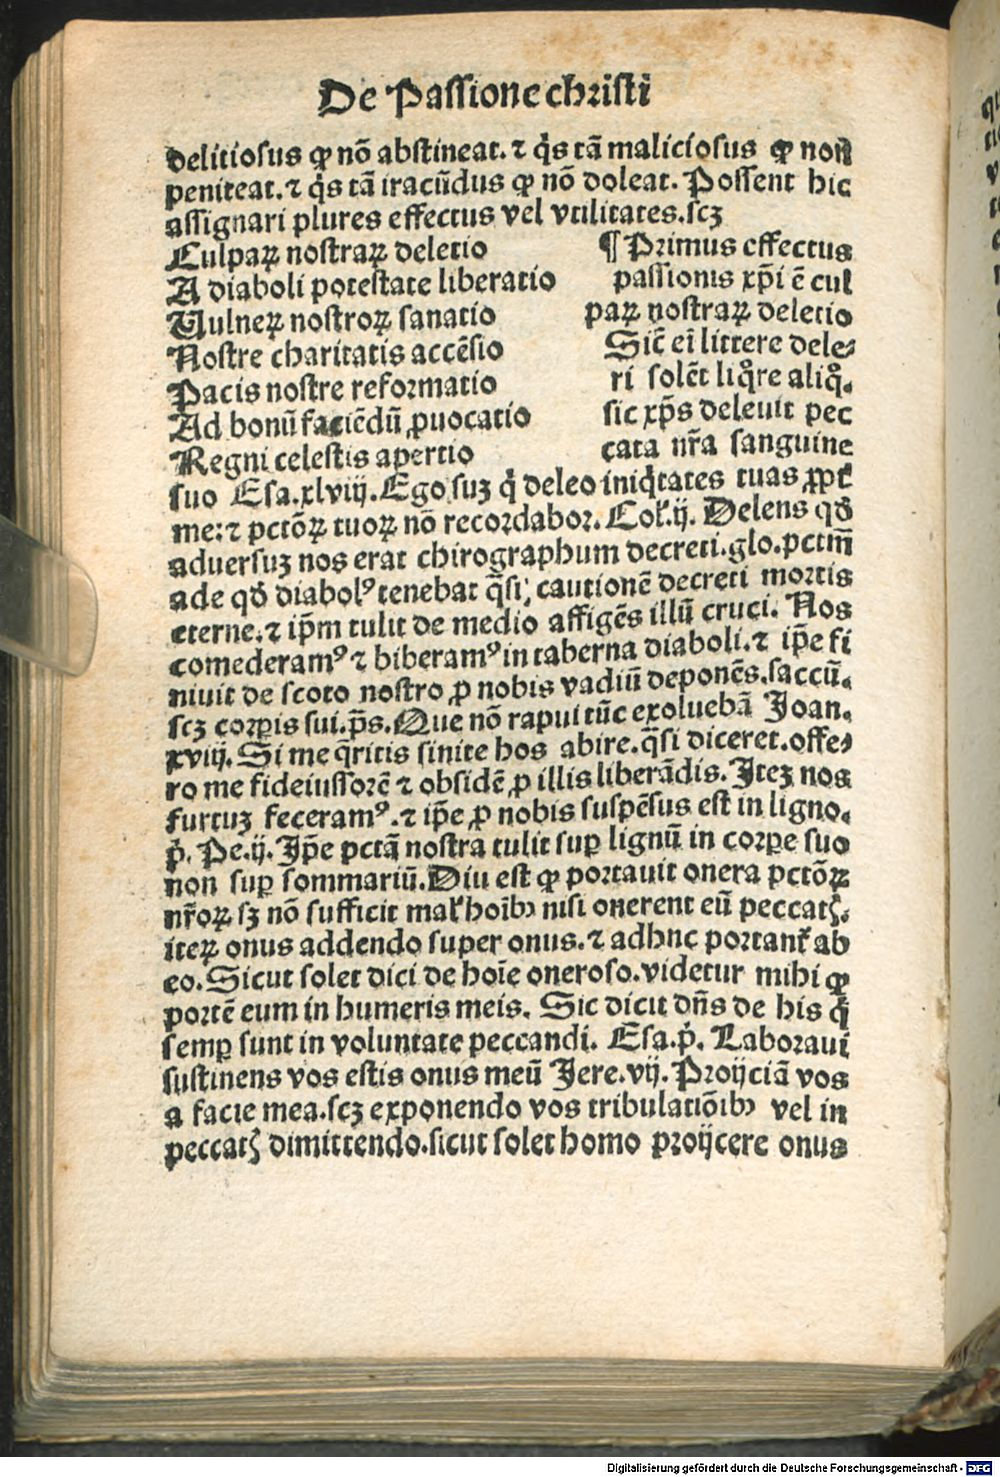 De Passione christi
delitiosus ꝙ nõ abstineat. ⁊ q̇s tã maliciosus ꝙ non
peniteat. ⁊ q̇s tã iracũdus ꝙ nõ doleat. Possent hic
assignari plures effectus vel vtilitates. scꝫ
Culpaꝝ nostraꝝ deletio
A diaboli potestate liberatio
Uulneꝝ nostroꝝ sanatio
Nostre charitatis accẽsio
Pacis nostre reformatio
Ad bonũ faciẽdũ ꝓuocatio
Regni celestis apertio
¶ Primus effectus
passionis xp̃i ẽ cul
paꝝ nostraꝝ deletio
Sic̃ ei͂ littere dele⸗
ri solẽt liq̊re aliq̊.
sic xp̃s deleuit pec
cata nr̃a sanguine
suo Esa. xlviij. Ego suꝫ q̇ deleo iniq̇tates tuas ꝓpt̉
me: ⁊ pctõꝝ tuoꝝ nõ recordabor. Col̉. ij. Delens qđ
aduersuꝫ nos erat chirographum decreti. glo. pctm̃
ade qđ diabolꝰ tenebat q̃si cautionẽ decreti mortis
eterne. ⁊ ip̃m tulit de medio affigẽs illũ cruci. Nos
comederamꝰ ⁊ biberamꝰ in taberna diaboli. ⁊ ip̃e fi
niuit de scoto nostro ꝓ nobis vadiũ deponẽs. saccũ.
scꝫ corꝑis sui. p̃s. Que nõ rapui tũc exoluebã Joan.
xviij. Si me q̃ritis sinite hos abire. q̃si diceret. offe⸗
ro me fideiussorẽ ⁊ obsidẽ ꝓ illis liberãdis. Iteꝫ nos
furtuꝫ feceramꝰ. ⁊ ip̃e ꝓ nobis suspẽsus est in ligno.
p̉. Pe. ij. Ip̃e pctã nostra tulit suꝑ lignũ in corꝑe suo
non suꝑ sommariũ. Diu est ꝙ portauit onera pctõꝝ
nr̃oꝝ sꝫ nõ sufficit mal̉ hoĩbꝰ nisi onerent eũ peccatꝭ.
iteꝝ onus addendo super onus. ⁊ adhuc portant̉ ab
eo. Sicut solet dici de hoĩe oneroso. videtur mihi ꝙ
portẽ eum in humeris meis. Sic dicit dñs de his q̇
semꝑ sunt in voluntate peccandi. Esa. p̉. Laboraui
sustinens vos estis onus meũ Jere. vij. Proijciã vos
a facie mea. scꝫ exponendo vos tribulatiõibꝰ vel in
peccatꝭ dimittendo. sicut solet homo proijcere onus
Digitalisierung gefördert durch die Deutsche Forschungsgemeinschaft - DFG